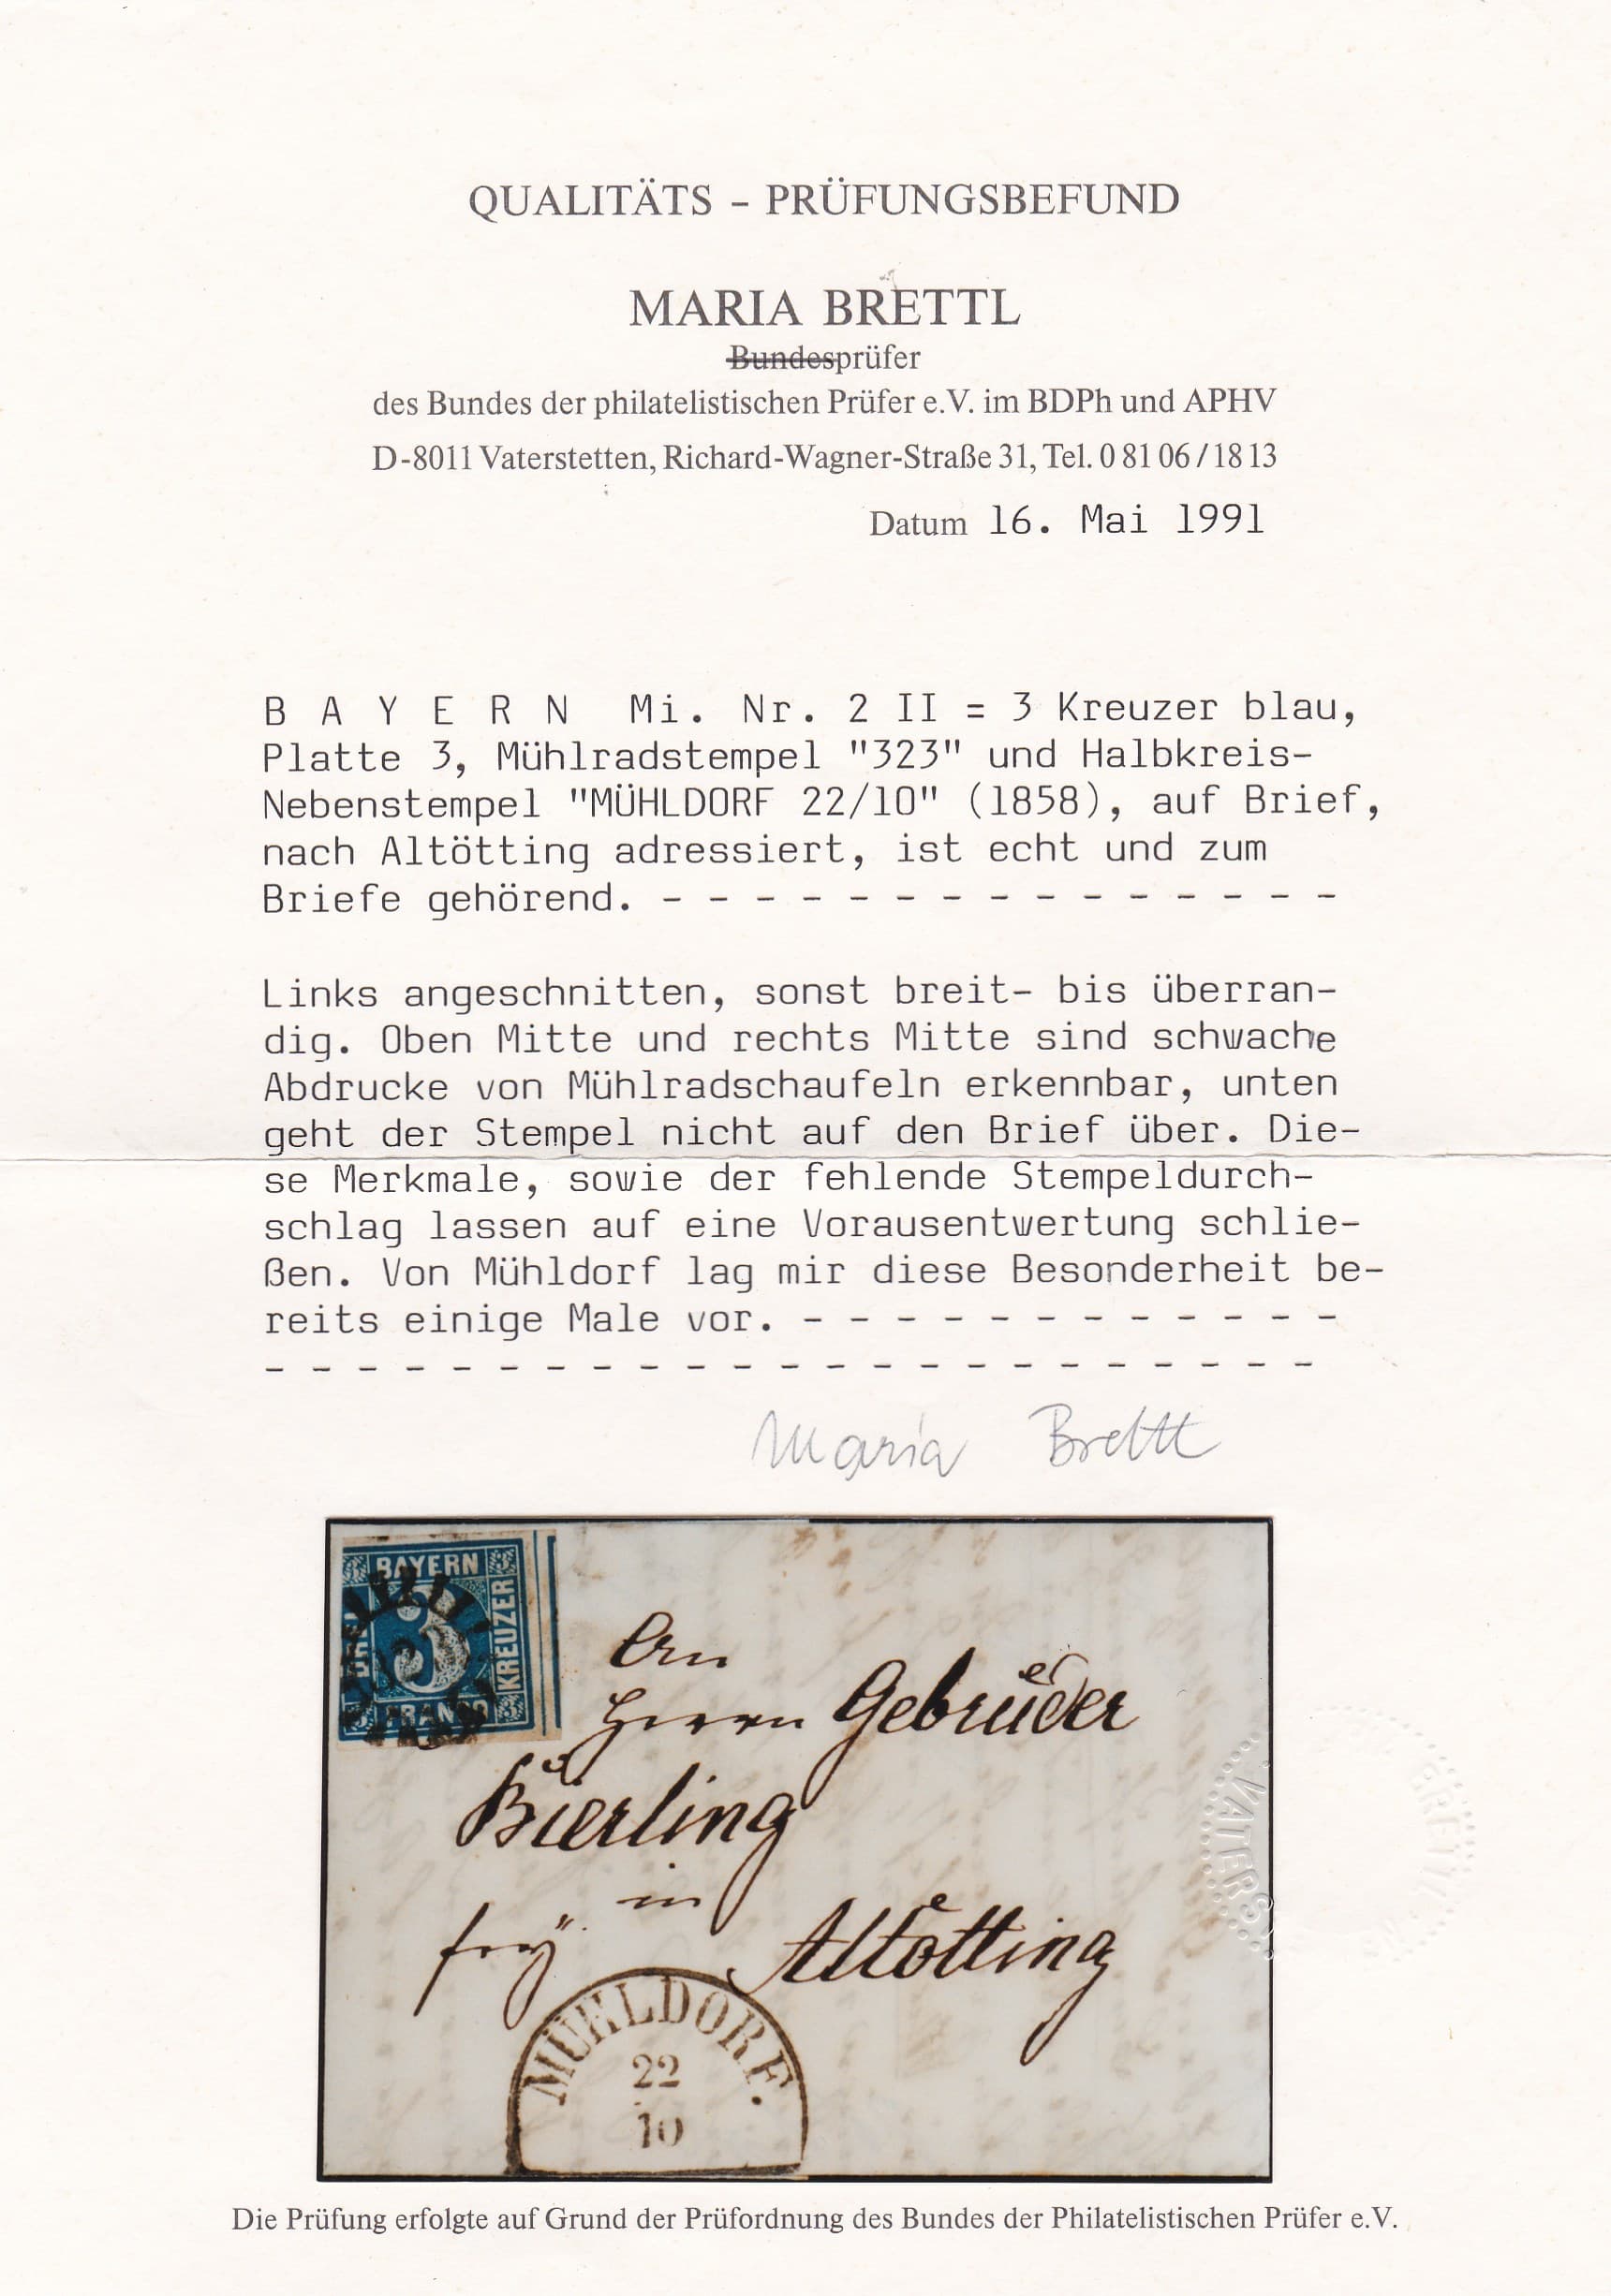 QUALITÄTS – PRÜFUNGSBEFUND
MARIA BRETTL
Bundesprüfer
des Bundes der philatelistischen Prüfer e.V. im BDPh und APHV
D-8011 Vaterstetten, Richard-Wagner-Straße 31, Tel. 0 81 06 / 18 13
Datum 16. Mai 1991
B A Y E R N Mi. Nr. 2 II = 3 Kreuzer blau,
Platte 3, Mühlradstempel "323" und Halbkreis-
Nebenstempel "MÜHLDORF 22/10" (1858), auf Brief,
nach Altötting adressiert, ist echt und zum
Briefe gehörend. - - - - - - - - - - - - - - -
Links angeschnitten, sonst breit- bis überran-
dig. Oben Mitte und rechts Mitte sind schwache
Abdrucke von Mühlradschaufeln erkennbar, unten
geht der Stempel nicht auf den Brief über. Die-
se Merkmale, sowie der fehlende Stempeldurch-
schlag lassen auf eine Vorausentwertung schlie-
ßen. Von Mühldorf lag mir diese Besonderheit be-
reits einige Male vor. - - - - - - - - - - - -
- - - - - - - - - - - - - - - - - - - - - - -
Maria Brettl
BAYERN
3
KREUZER
An
Herrn Gebrüder
Bierling
in
Altötting
MÜHLDORF.
22
10
VATERS
Die Prüfung erfolgte auf Grund der Prüfordnung des Bundes der Philatelistischen Prüfer e.V.